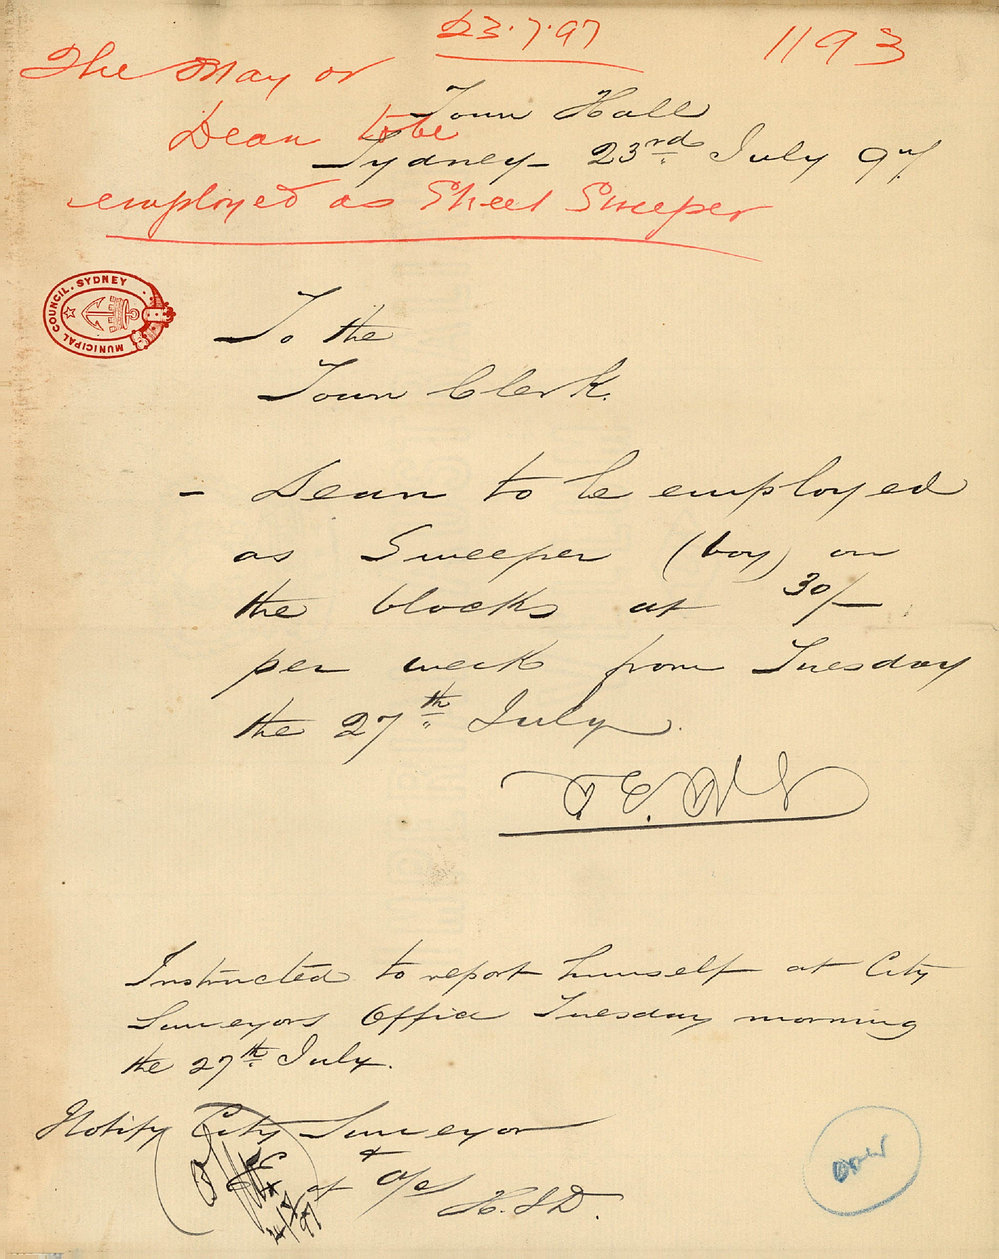 23.7.97
1193
The Mayor
Dean to be
employed as Street Sweeper
Town Hall
Sydney 23rd July 97
MUNICIPAL COUNCIL. SYDNEY
To the
Town Clerk.
- Dean to be employed
as Sweeper (boy) on
the blocks at 30/-
per week from Tuesday
the 27th July.
Instructed to report himself at City
Surveyors Office Tuesday morning
the 27th July.
Notify City Surveyor
& 
of a/cs
H.S.D.